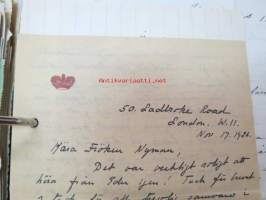 Antikvariaatti.net
50. Ladbroke Road
London. W.11.
Nov. 17. 1956.
Kära Fröken Nyman,
Det var verkligt roligt att
höra från Eder igen. Tack för brevet